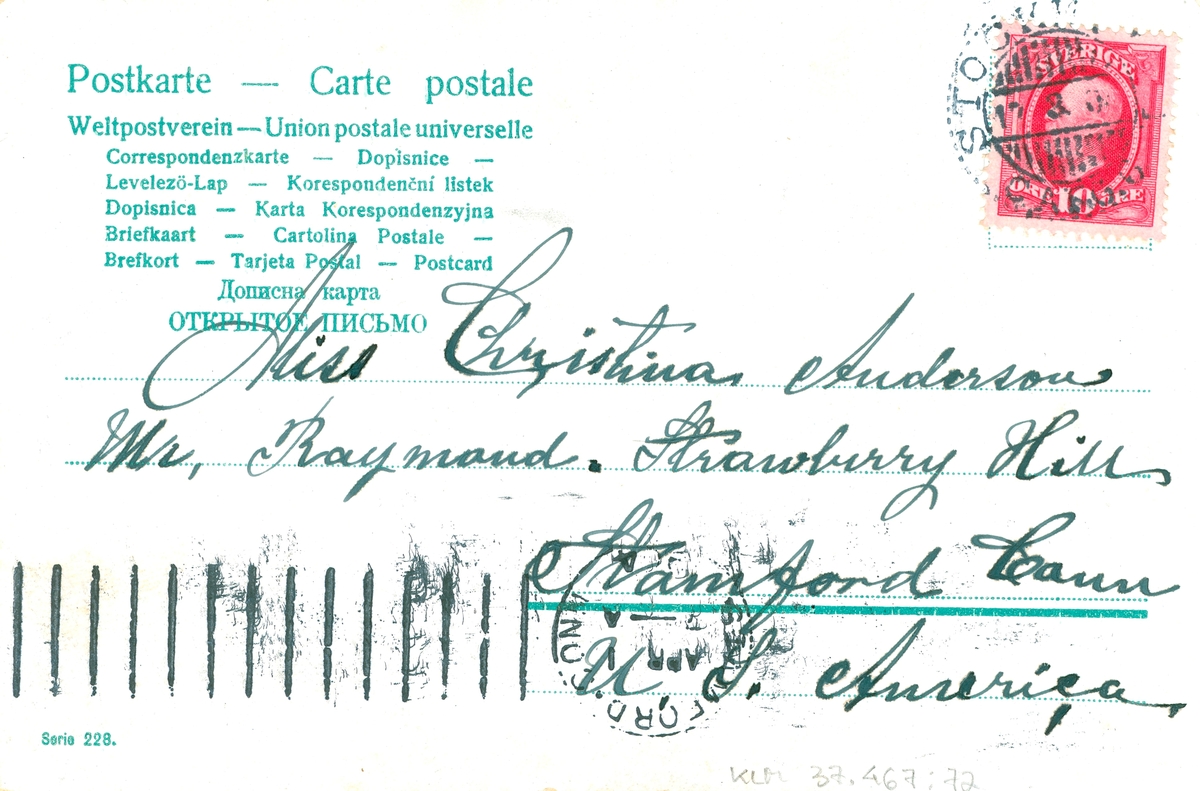 Postkarte — Carte postale
Weltpostverein — Union postale universelle
Correspondenzkarte — Dopisnice —
Levelezö-Lap — Korespondenční listek
Dopisnica — Karta Korespondenzyjna
Briefkaart — Cartolina Postale —
Brefkort — Tarjeta Postal — Postcard
Дописна карта
ОТКРЫТОЕ ПИСЬМО
SVERIGE
10
Miss Christina Anderson
Mr, Raymond. Strawburry Hill
Stamford Conn
U. S. America
APR
Serie 228.
KLM 37.467:72